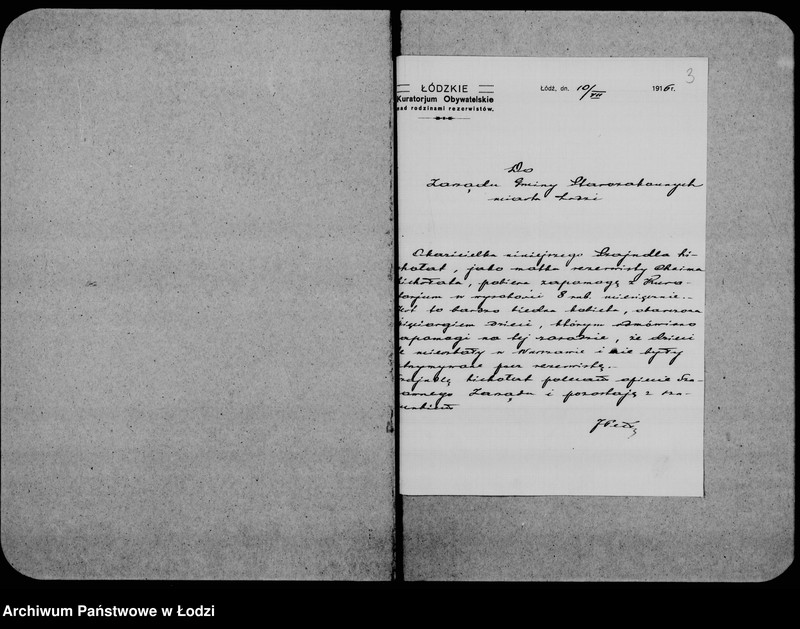 3
ŁÓDZKIE
Kuratorjum Obywatelskie
nad rodzinami rezerwistów.
Łódź, dn. 10/VII 1916 r.
Do
Zarządu Gminy Starozakonnych
miasta Łodzi
Okazicielka niniejszego Szajndla Li-
chołat, jako matka rezerwisty Chaima
Lichołata, pobiera zapomogę z Kura-
torjum w wysokości 8 rub. miesięcznie..
Jest to bardzo biedna kobieta, obarczona
dzieci, którym odmówiono
zapomogi na tej zasadzie, że dzieci
te mieszkały w Warszawie i nie były
utrzymywane przez rezerwistę..
Szajndlę Lichołat polecam opiece Sza-
nownego Zarządu i pozostaję z sza-
cunkiem
Archiwum Państwowe w Łodzi